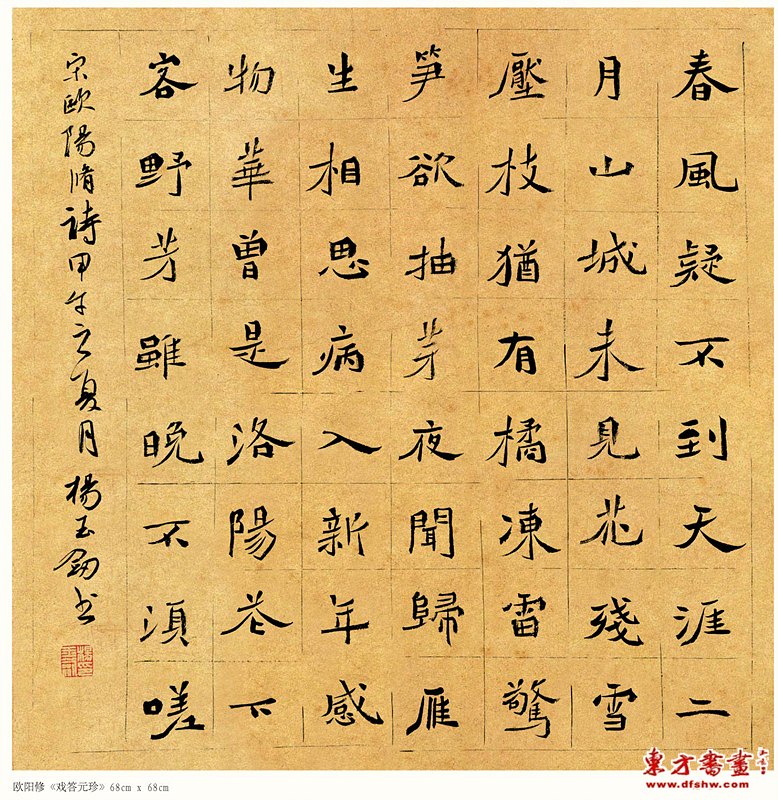 春風疑不到天涯二
月山城未見花殘雪
壓枝猶有橘凍雷驚
笋欲抽芽夜聞歸雁
生相思病入新年感
物華曾是洛陽花下
客野芳雖晚不須嗟
宋歐陽脩詩甲午之夏月楊玉劒书
欧阳修《戏答元珍》68cm x 68cm
東方書畫
www.dfshw.com